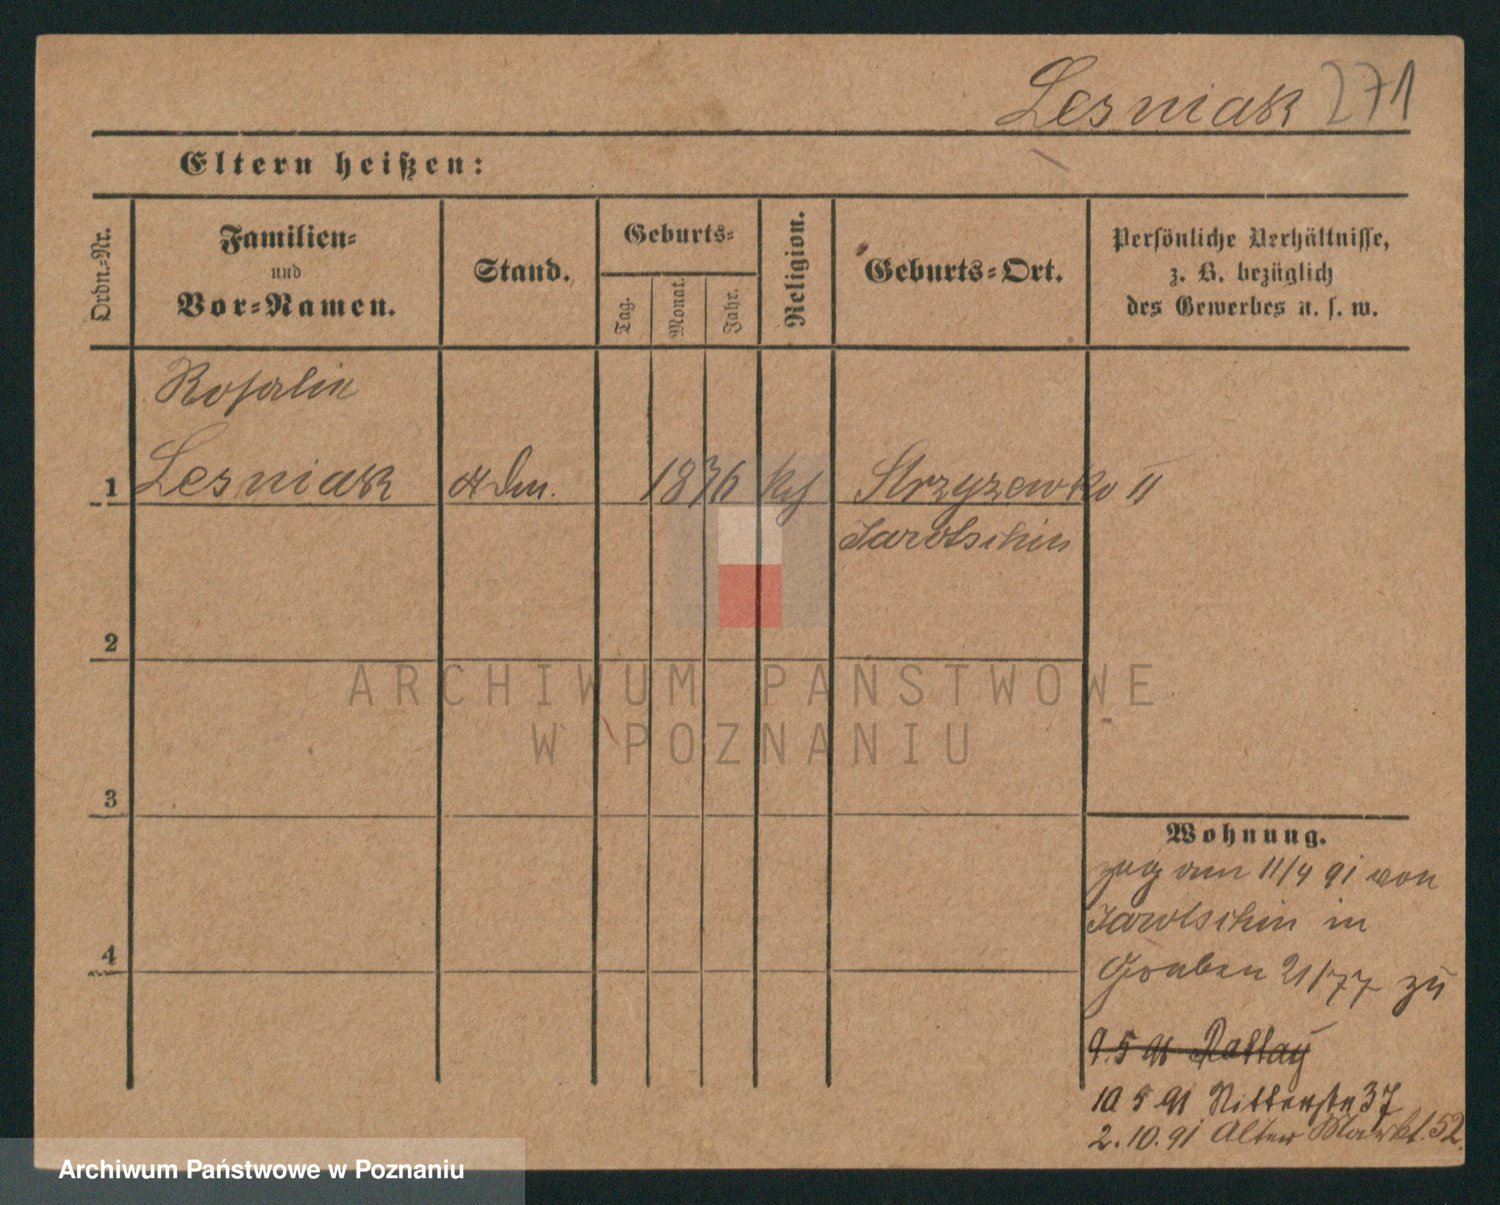 Lesniak 271
Eltern heißen:
Ordn.-Nr.
Familien-
und
Vor-Namen.
Stand.
Geburts-
Tag.
Monat.
Jahr.
Religion.
Geburts-Ort.
Persönliche Verhältnisse,
z. B. bezüglich
des Gewerbes u. s. w.
Rosalie
1 Lesniak 1876 kth Strzyzewko II
Jarotschin
2
ARCHIWUM PAŃSTWOWE
W POZNANIU
3
Wohnung.
zug am 11/4 91 von
Jarotschin in
4
Graben 21/77 zu
9.5 91
10 5 91 Ritterstr 37
2.10.91 Alter Markt 52.
Archiwum Państwowe w Poznaniu